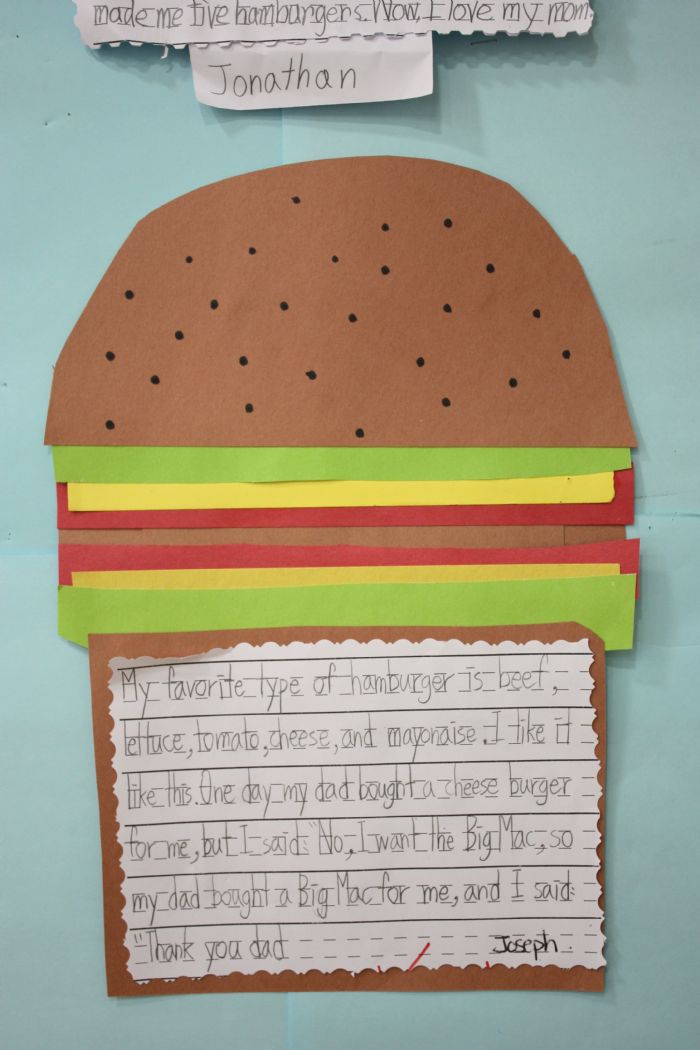 made me five hamburgers. Now, I love my mom.
Jonathan
My favorite type of hamburger is beef,
lettuce, tomato, cheese, and mayonaise. I like it
like this. One day my dad bought a cheese burger
for me, but I said: "No, I want the Big Mac, so
my dad bought a Big Mac for me, and I said:
"Thank you dad
Joseph.